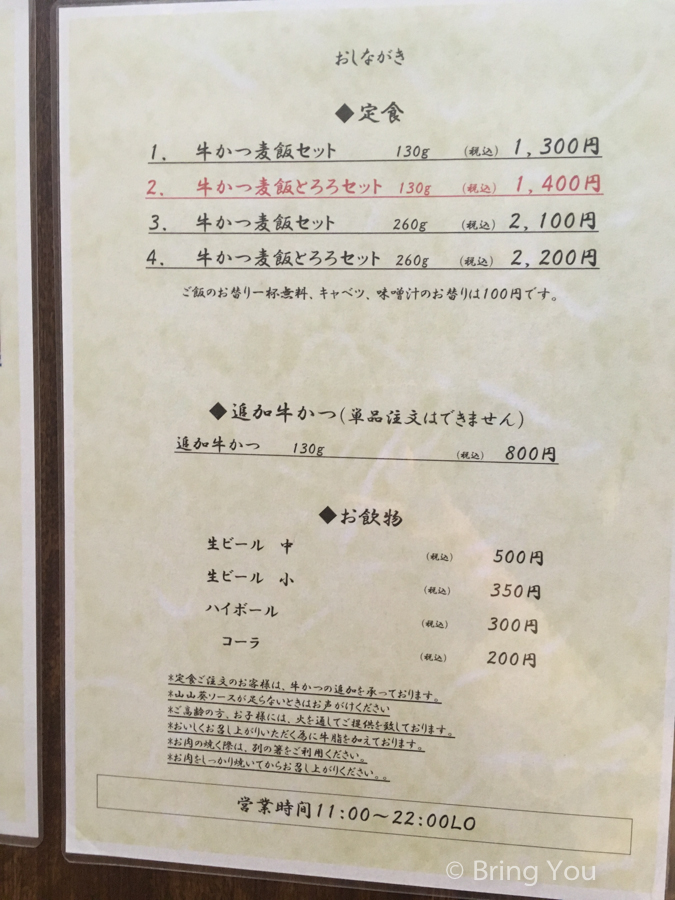 おしながき
◆定食
1. 牛かつ麦飯セット 130g (税込) 1,300円
2. 牛かつ麦飯とろろセット 130g (税込) 1,400円
3. 牛かつ麦飯セット 260g (税込) 2,100円
4. 牛かつ麦飯とろろセット 260g (税込) 2,200円
ご飯のお替り一杯無料、キャベツ、味噌汁のお替りは100円です。
◆追加牛かつ(単品注文はできません)
追加牛かつ 130g (税込) 800円
◆お飲物
生ビール 中 (税込) 500円
生ビール 小 (税込) 350円
ハイボール (税込) 300円
コーラ (税込) 200円
*定食ご注文のお客様は、牛かつの追加を承っております。
*山山葵ソースが足らないときはお声がけください
*ご高齢の方、お子様には、火を通してご提供を致しております。
*おいしくお召し上がりいただく為に牛脂を加えております。
*お肉の焼く際は、別の箸をご利用ください。
*お肉をしっかり焼いてからお召し上がりください。。
営業時間11:00～22:00LO
© Bring You